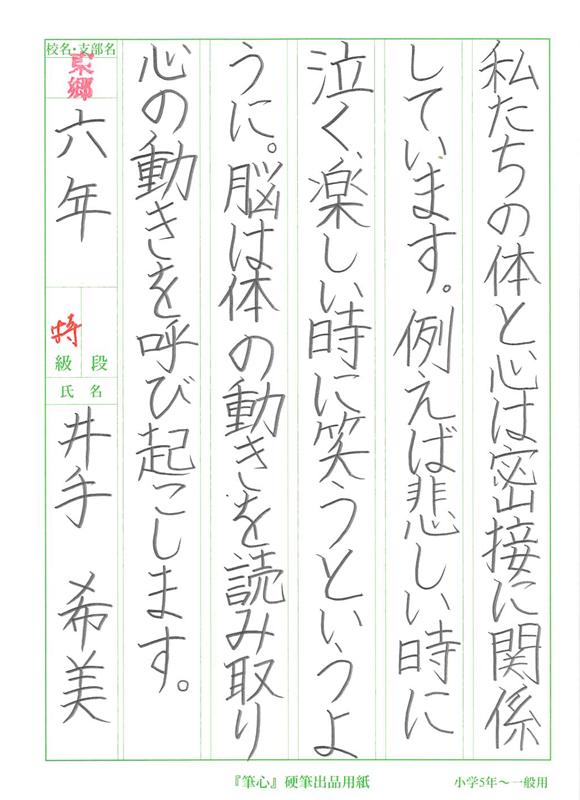 私たちの体と心は密接に関係
しています。例えば悲しい時に
泣く、楽しい時に笑うというよ
うに。脳は体の動きを読み取り
心の動きを呼び起こします。
校名・支部名
東郷
六年
特
級 段
氏名
井手 希美
『筆心』硬筆出品用紙
小学5年〜一般用